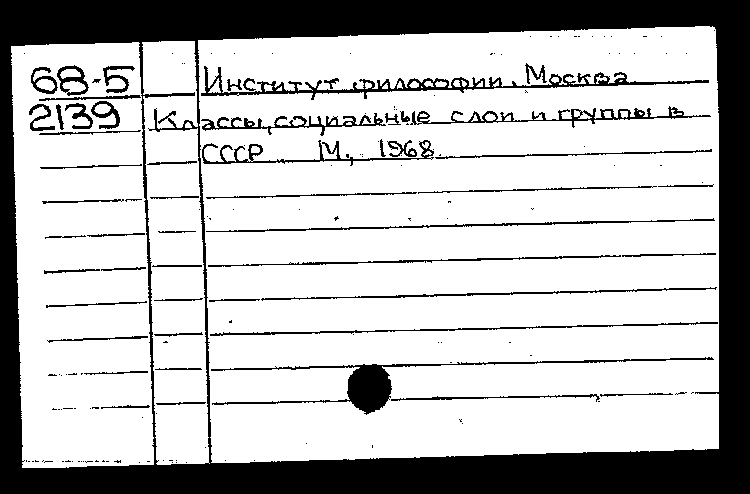 68-5 Институт философии. Москва.
2139 Классы, социальные слои и группы в
СССР М., 1968